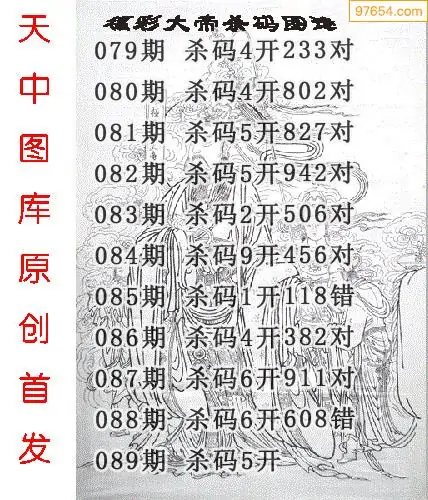 97654.com
福彩大帝杀码图谜
079期 杀码4开233对
080期 杀码4开802对
081期 杀码5开827对
082期 杀码5开942对
083期 杀码2开506对
084期 杀码9开456对
085期 杀码1开118错
086期 杀码4开382对
087期 杀码6开911对
088期 杀码6开608错
089期 杀码5开
天中图库原创首发